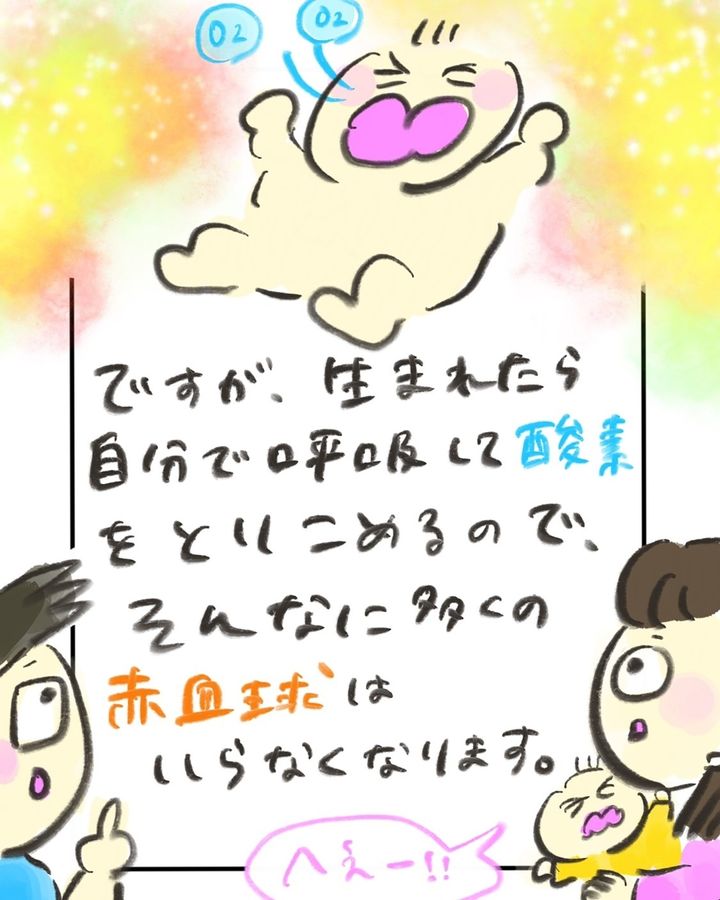 O2
O2
ですが、生まれたら
自分で呼吸して酸素
をとりこめるので、
そんなに多くの
赤血球は
いらなくなります。
へぇー!!